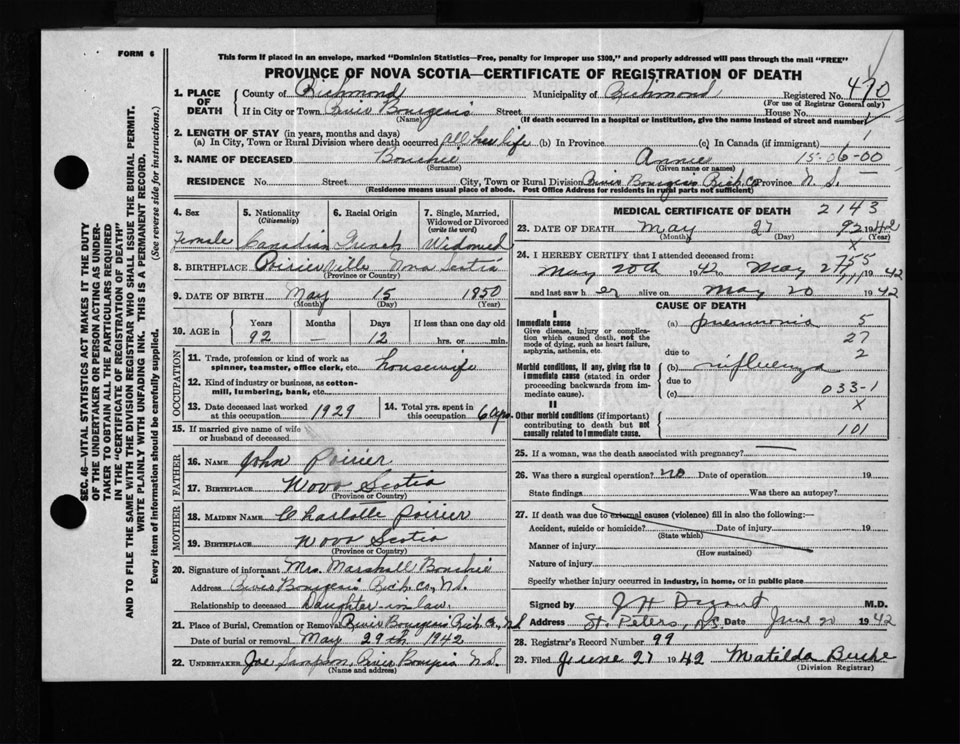 FORM 6
This form if placed in an envelope, marked "Dominion Statistics—Free, penalty for improper use $300," and properly addressed will pass through the mail "FREE"
PROVINCE OF NOVA SCOTIA—CERTIFICATE OF REGISTRATION OF DEATH
470
1. PLACE OF DEATH
County of Richmond Municipality of Richmond Registered No.
(For use of Registrar General only)
If in City or Town River Bourgeois Street House No.
(Name) (If death occurred in a hospital or institution, give the name instead of street and number)
2. LENGTH OF STAY (in years, months and days)
(a) In City, Town or Rural Division where death occurred all her life (b) In Province (c) In Canada (if immigrant)
3. NAME OF DECEASED Bouchie Annie 15-06-00
(Surname) (Given name or names)
RESIDENCE No. Street City, Town or Rural Division River Bourgeois Rich. Co Province N.S.
(Residence means usual place of abode. Post Office Address for residents in rural parts not sufficient)
4. Sex 5. Nationality (Citizenship) 6. Racial Origin 7. Single, Married, Widowed or Divorced (write the word)
Female Canadian French Widowed
8. BIRTHPLACE Poirierville Nova Scotia
(Province or Country)
9. DATE OF BIRTH May 15 1850
(Month) (Day) (Year)
10. AGE in Years Months Days If less than one day old
92 — 12 hrs. or min.
OCCUPATION
11. Trade, profession or kind of work as spinner, teamster, office clerk, etc. housewife
12. Kind of industry or business, as cotton-mill, lumbering, bank, etc.
13. Date deceased last worked at this occupation 1929 14. Total yrs. spent in this occupation
15. If married give name of wife or husband of deceased
FATHER
16. NAME John Poirier
17. BIRTHPLACE Nova Scotia
(Province or Country)
MOTHER
18. MAIDEN NAME Charlotte Poirier
19. BIRTHPLACE Nova Scotia
(Province or Country)
20. Signature of informant Mrs. Marshall Bouchie
Address River Bourgeois Rich. Co, N.S.
Relationship to deceased Daughter-in-law.
21. Place of Burial, Cremation or Removal River Bourgeois Rich. Co., N.S
Date of burial or removal May 29th 1942
22. UNDERTAKER Joe Sampson, River Bourgeois N.S.
(Name and address)
MEDICAL CERTIFICATE OF DEATH 2143
23. DATE OF DEATH May 27 92 1942
(Month) (Day) (Year)
X
24. I HEREBY CERTIFY that I attended deceased from: 755
May 20th 1942 to May 27 1942
and last saw her alive on May 20 1942
CAUSE OF DEATH
I
Immediate cause
Give disease, injury or complication which caused death, not the mode of dying, such as heart failure, asphyxia, asthenia, etc.
(a) pneumonia 5
27
due to 2
Morbid conditions, if any, giving rise to immediate cause (stated in order proceeding backwards from immediate cause).
(b) influenza
due to
(c) 033-1
X
II
Other morbid conditions (if important) contributing to death but not causally related to immediate cause.
101
25. If a woman, was the death associated with pregnancy?
26. Was there a surgical operation? no Date of operation 19
State findings Was there an autopsy?
27. If death was due to external causes (violence) fill in also the following:—
Accident, suicide or homicide? Date of injury 19
(State which)
Manner of injury
(How sustained)
Nature of injury
Specify whether injury occurred in industry, in home, or in public place
Signed by M.D.
Address St. Peters, N.S. Date June 20 1942
28. Registrar's Record Number 99
29. Filed June 27 1942 Matilda Burke
(Division Registrar)
SEC. 46—VITAL STATISTICS ACT MAKES IT THE DUTY
OF THE UNDERTAKER OR PERSON ACTING AS UNDER-
TAKER TO OBTAIN ALL THE PARTICULARS REQUIRED
IN THE "CERTIFICATE OF REGISTRATION OF DEATH"
AND TO FILE THE SAME WITH THE DIVISION REGISTRAR WHO SHALL ISSUE THE BURIAL PERMIT.
WRITE PLAINLY WITH UNFADING INK. THIS IS A PERMANENT RECORD.
Every item of information should be carefully supplied. (See reverse side for instructions.)